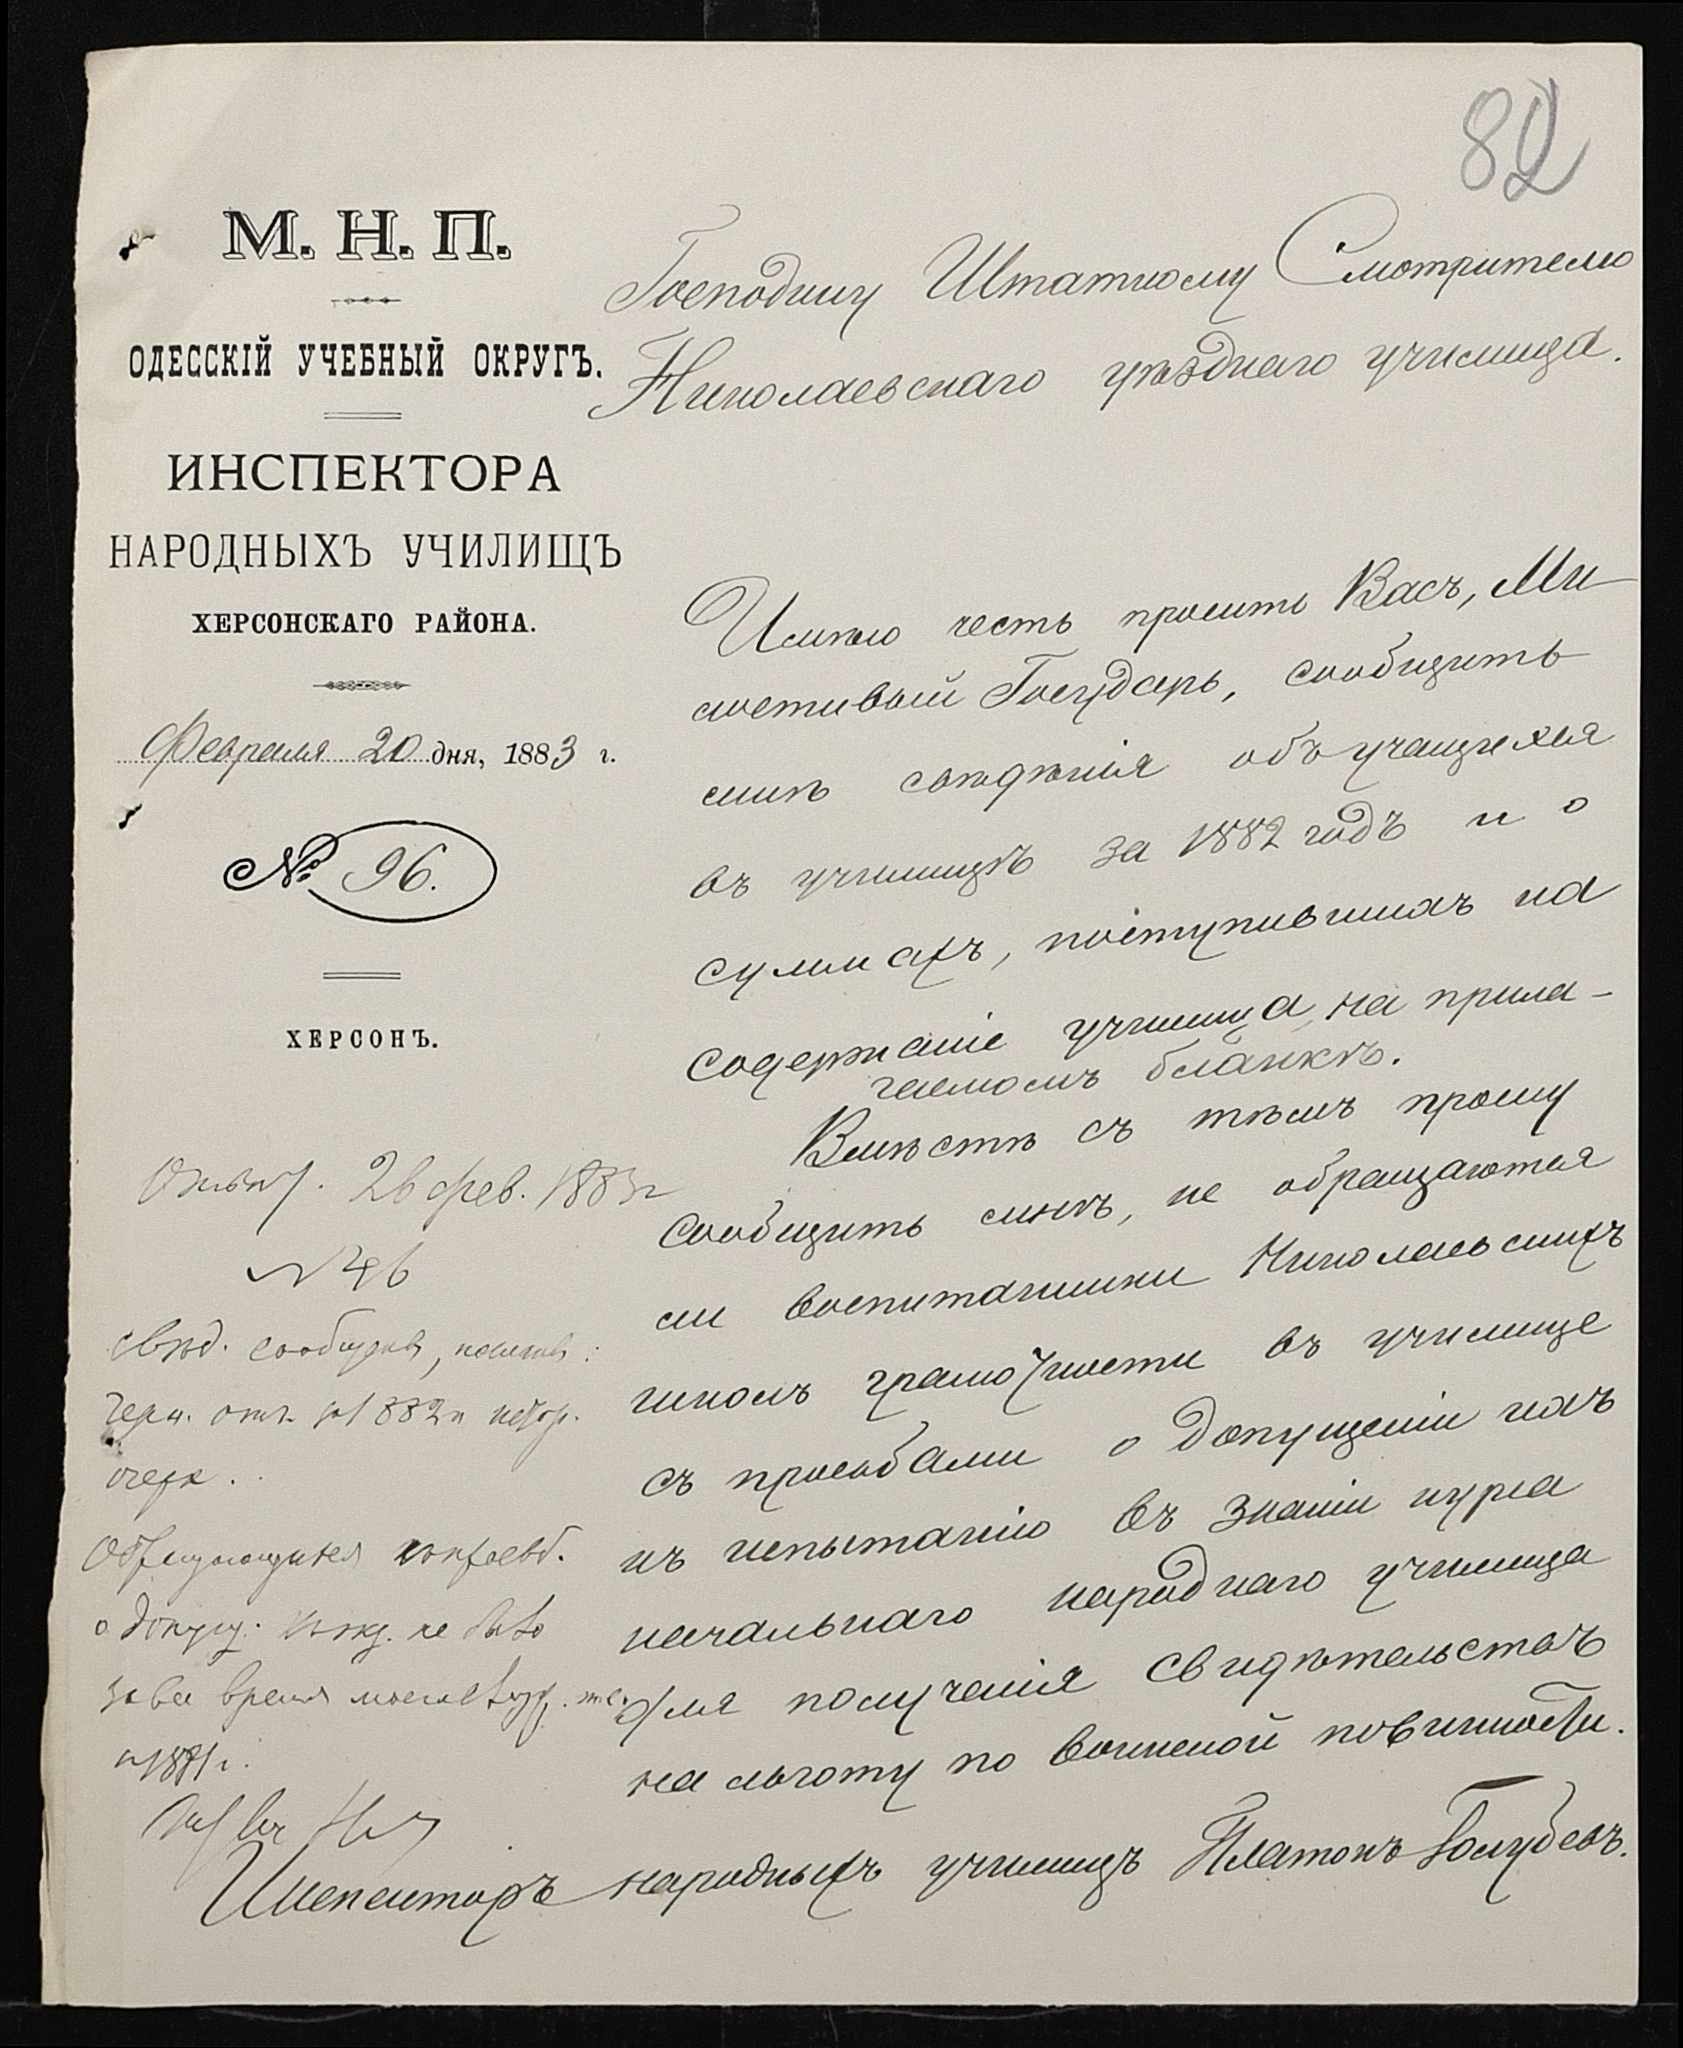 82
М. Н. П.
ОДЕССКІЙ УЧЕБНЫЙ ОКРУГЪ.
ИНСПЕКТОРА
НАРОДНЫХЪ УЧИЛИЩЪ
ХЕРСОНСКАГО РАЙОНА.
Февраля 20 дня, 1883 г.
№ 96.
ХЕРСОНЪ.
Господину Штатному Смотрителю
Николаевскаго уѣзднаго училища.
Имѣю честь просить Васъ, Ми
лостивый Государь, сообщить
мнѣ свѣдѣнія объ учащихся
въ училищѣ за 1882 годъ и о
суммахъ, поступившихъ на
содержаніе училища, на прила-
гаемомъ бланкѣ.
Вмѣстѣ съ тѣмъ прошу
сообщить мнѣ, не обращаются
ли воспитанники Николаевскихъ
школъ грамотности въ училище
съ просьбами о допущеніи ихъ
къ испытанію въ знаніи курса
начальнаго народнаго училища
для полученія свидѣтельствъ
на льготу по воинской повинности.
Инспекторъ народныхъ училищъ Платонъ Голубевъ.
26 фев. 1883 г
№ 46
свѣд. сообщены,
за 1882 г
очерк.
Обращающихся
о допущ. не было
за все время
1881 г.